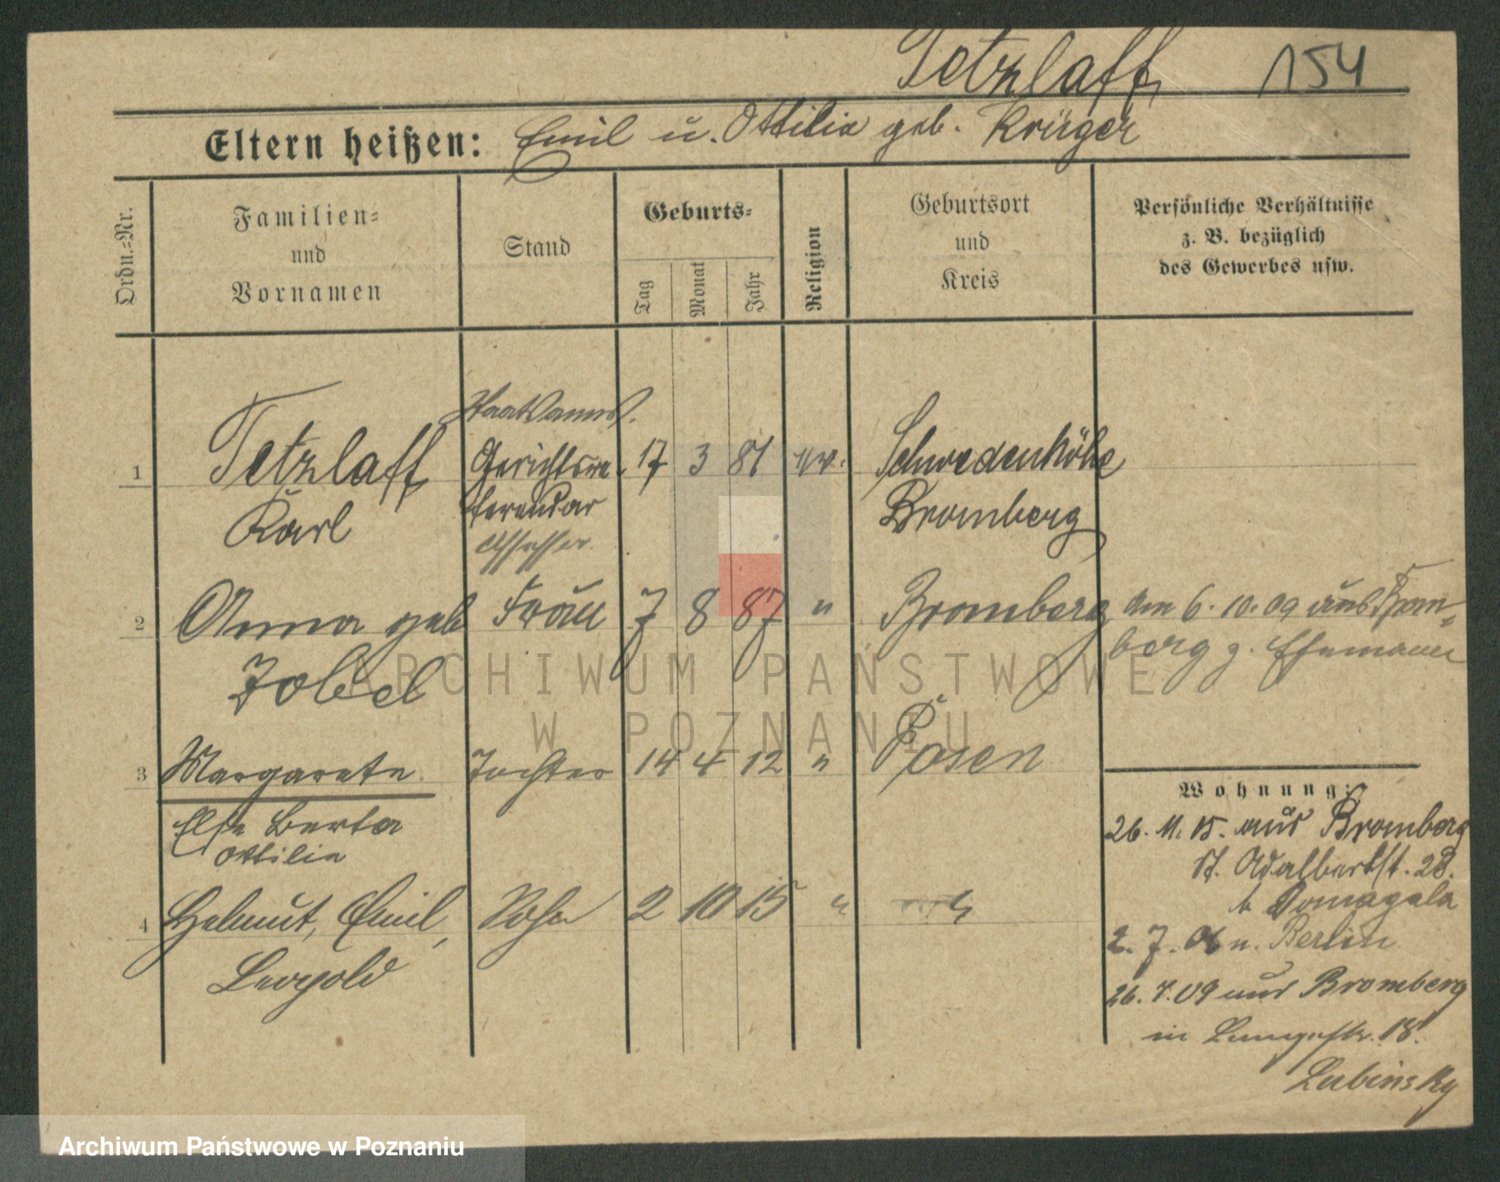 Tetzlaff 154
Eltern heißen: Emil u. Ottilie geb. Krüger
Ordn.-Nr.
Familien-
und
Vornamen
Stand
Geburts-
Tag
Monat
Jahr
Religion
Geburtsort
und
Kreis
Persönliche Verhältnisse
z. B. bezüglich
des Gewerbes usw.
1 Tetzlaff Gerichtsre- 17 3 81 ev. Schwedenhöhe
Karl ferendar Bromberg
Assessor
2 Anna geb Frau 7 8 87 " Bromberg am 6.10.09 aus Brom-
Zobel berg z. Ehemann
3 Margarete Tochter 14 4 12 " Posen
Else Berta
Ottilie
4 Helmut, Emil, Sohn 2 10 15 " "
Leopold
Wohnung:
26. 11. 05. aus Bromberg
St. Adalbertst. 28.
b Domagala
2. 7. 06 n. Berlin
26. 7. 09 aus Bromberg
in Langestr. 18.
Lubinsky
ARCHIWUM PAŃSTWOWE
W POZNANIU
Archiwum Państwowe w Poznaniu